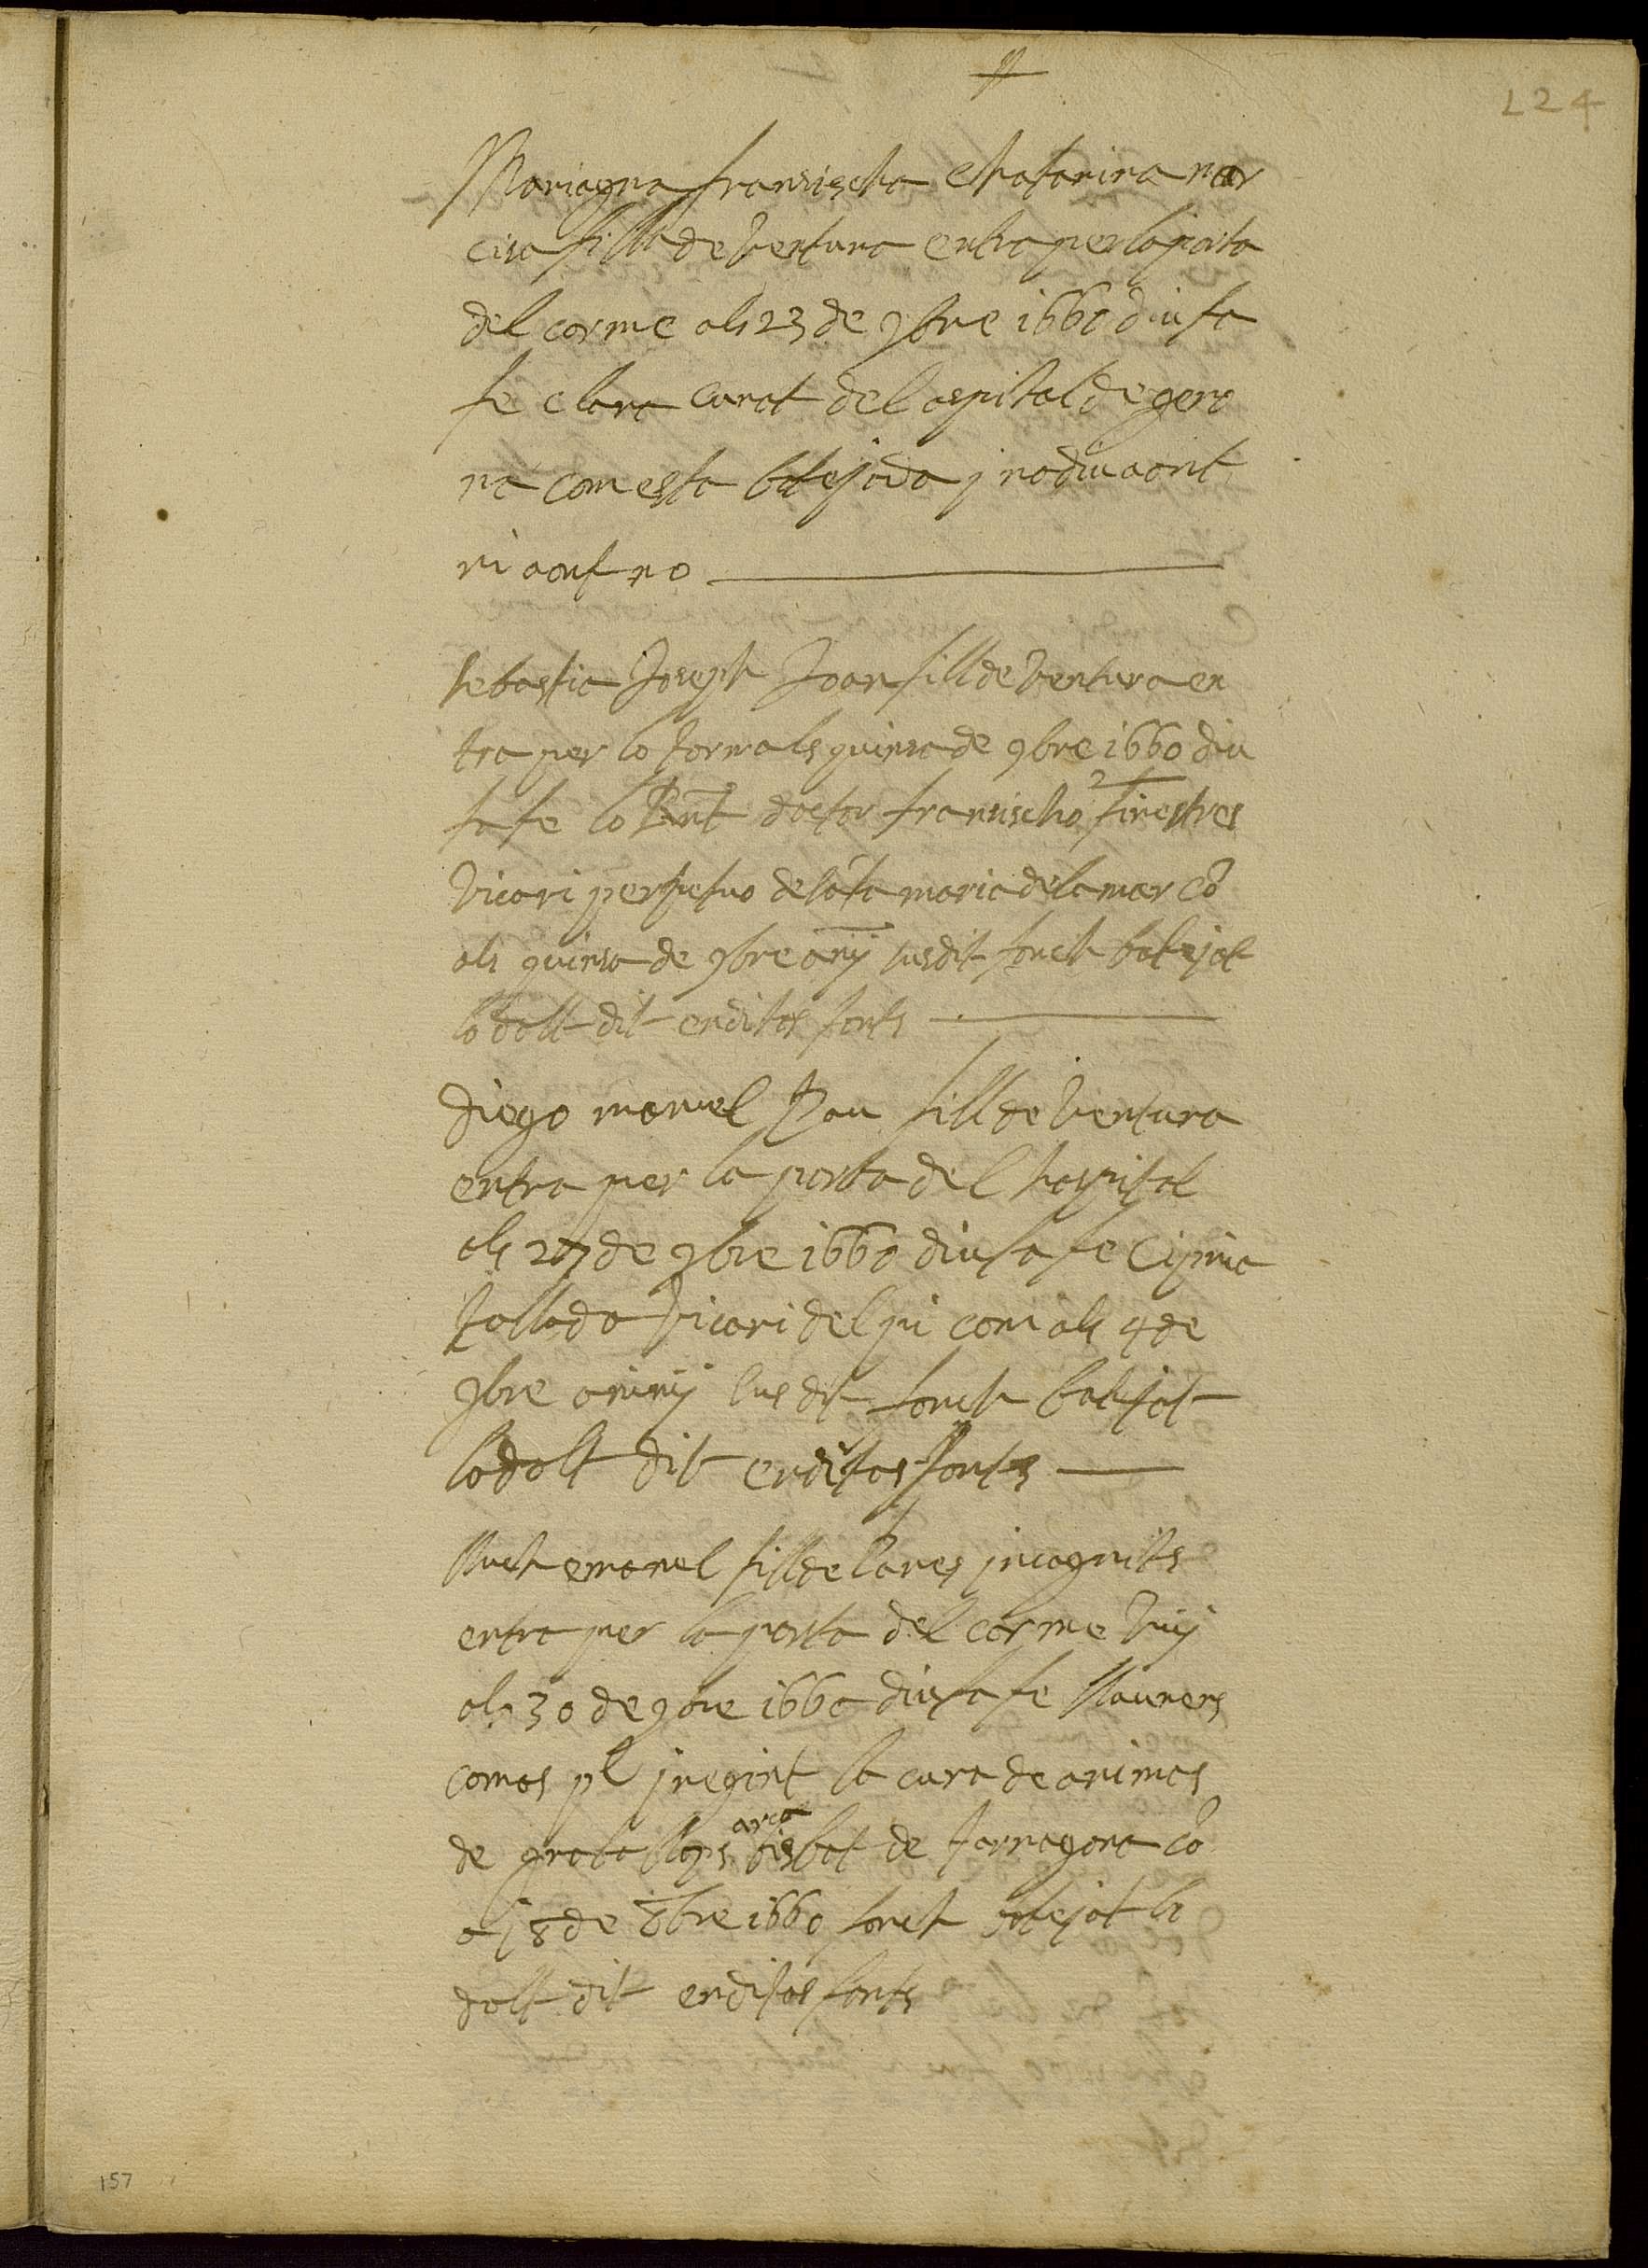 224
Mariagna fransischa chatarina nar
cisa filla de Ventura entra per la porta
del carme als 23 de 9bre 1660 diu sa
fe clara curat del ospital de gero
na com esta batejada j no diu a ont
ni a ont no
sebastia Joseph Joan fill de Ventura en
tra per lo torn als quinsa de 9bre 1660 diu
sa fe lo Rnt doctor fransischo finestres
Vicari perpetuo de sata maria de la mar co
als quinsa de 9bre anÿ susdit fonch batejat
lo dalt dit en ditas fonts
diego manuel Pau fill de Ventura
entra per la porta del hospital
als 27 de 9bre 1660 diu sa fe Cipria
Vallada Vicari del pi com als 4 de
9bre annÿ susdit fonch batejat
lo dalt dit en ditas fonts
lluch emanuel fill de Pares incognits
entra per la porta del carme Vuÿ
als 30 de 9bre 1660 diu sa fe
comas j regint la cura de animas
de grata llops arca bisbat de tarragona co
a j8 de 8bre 1660 fonch batejat lo
dalt dit en ditas fonts
157